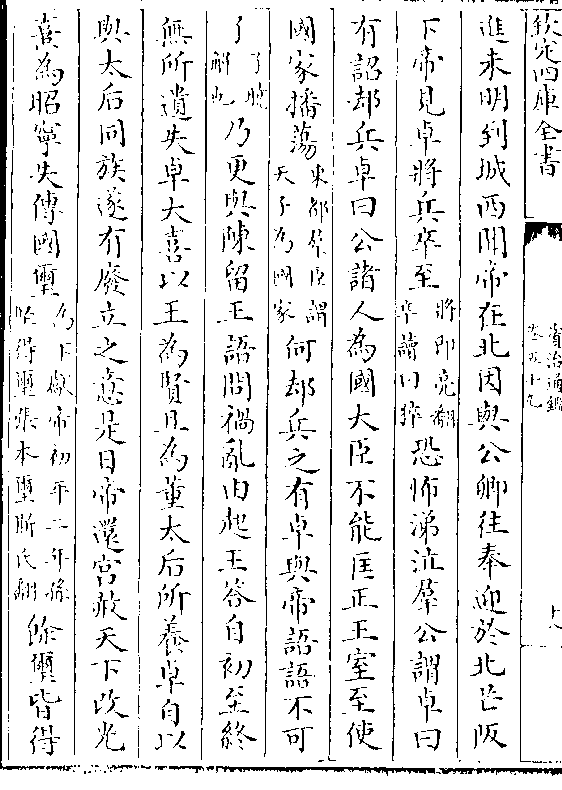 欽定四庫全書
資治通鑑
卷五十九
十八
進未明到城西聞帝在北因與公卿往奉迎於北芒阪
下帝見卓將兵卒至將即亮翻卒讀曰猝恐怖涕泣羣公謂卓曰
有詔却兵卓曰公諸人為國大臣不能匡正王室至使
國家播蕩東都羣臣謂天子為國家何却兵之有卓與帝語語不可
了了曉解也乃更與陳留王語問禍亂由起王答自初至終
無所遺失卓大喜以王為賢且為董太后所養卓自以
與太后同族遂有廢立之意是日帝還宮赦天下改光
熹為昭寧失傳國璽為下獻帝初平二年孫堅得璽張本璽斯氏翻餘璽皆得